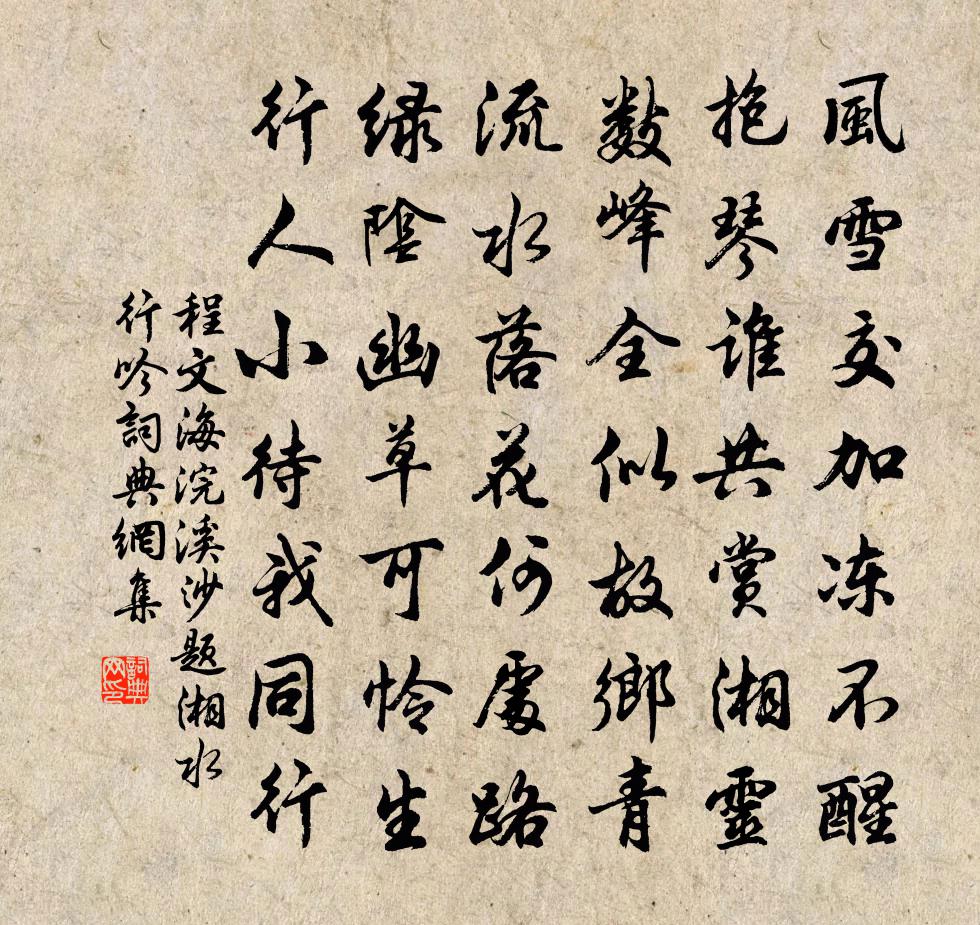 風雪交加冻不醒
抱琴誰共賞湘靈
數峰全似故鄉青
流水落花何處路
绿陰幽草可怜生
行人小待我同行
程文海浣溪沙题湘水
行吟詞典網集
詞典
网印